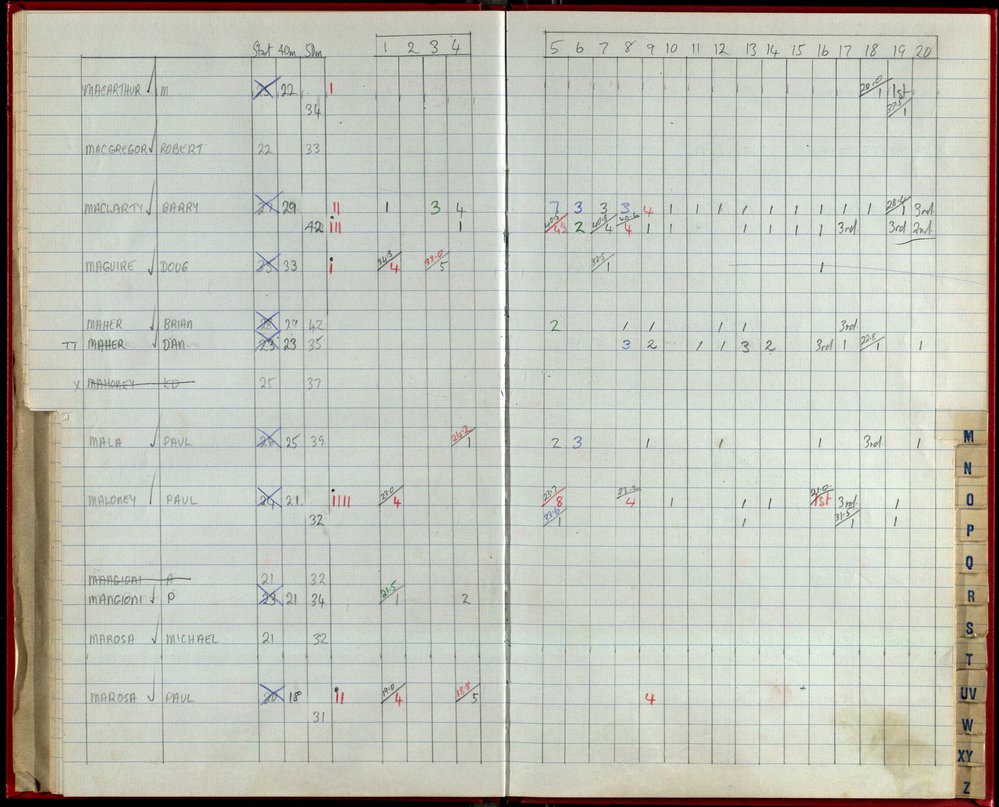 Start 40m 50m 1 2 3 4 5 6 7 8 9 10 11 12 13 14 15 16 17 18 19 20
MACARTHUR M 22 1 20.0 1 1st
34 1
MACGREGOR ROBERT 22 33
MACLARTY BARRY 27 29 11 1 3 4 7 3 3 3 4 1 1 1 1 1 1 1 1 1 28.4 1 3rd
42 111 1 40.5 4½ 2 40.8 4 40.6 4 1 1 1 1 1 1 3rd 3rd 2nd
MAGUIRE DOUG 35 33 1 34.3 4 33.0 5 32.5 1 1
MAHER BRIAN 28 29 42 2 1 1 1 1 3rd
TT MAHER DAN 23 23 35 3 2 1 1 3 2 3rd 1 22.8 1 1
X MAHONEY KD 25 37
MALA PAUL 26 25 39 26.2 1 2 3 1 1 1 3rd 1
MALONEY PAUL 24 21 1111 23.0 4 23.7 8 23.2 4 1 1 1 21.0 1st 3rd 1
32 33.6 1 1 31.5 1 1
MANGIONI A 21 32
MANGIONI P 23 21 34 21.5 1 2
MAROSA MICHAEL 21 32
MAROSA PAUL 20 18 11 19.0 4 18.8 5 4
31
M
N
O
P
Q
R
S
T
UV
W
XY
Z